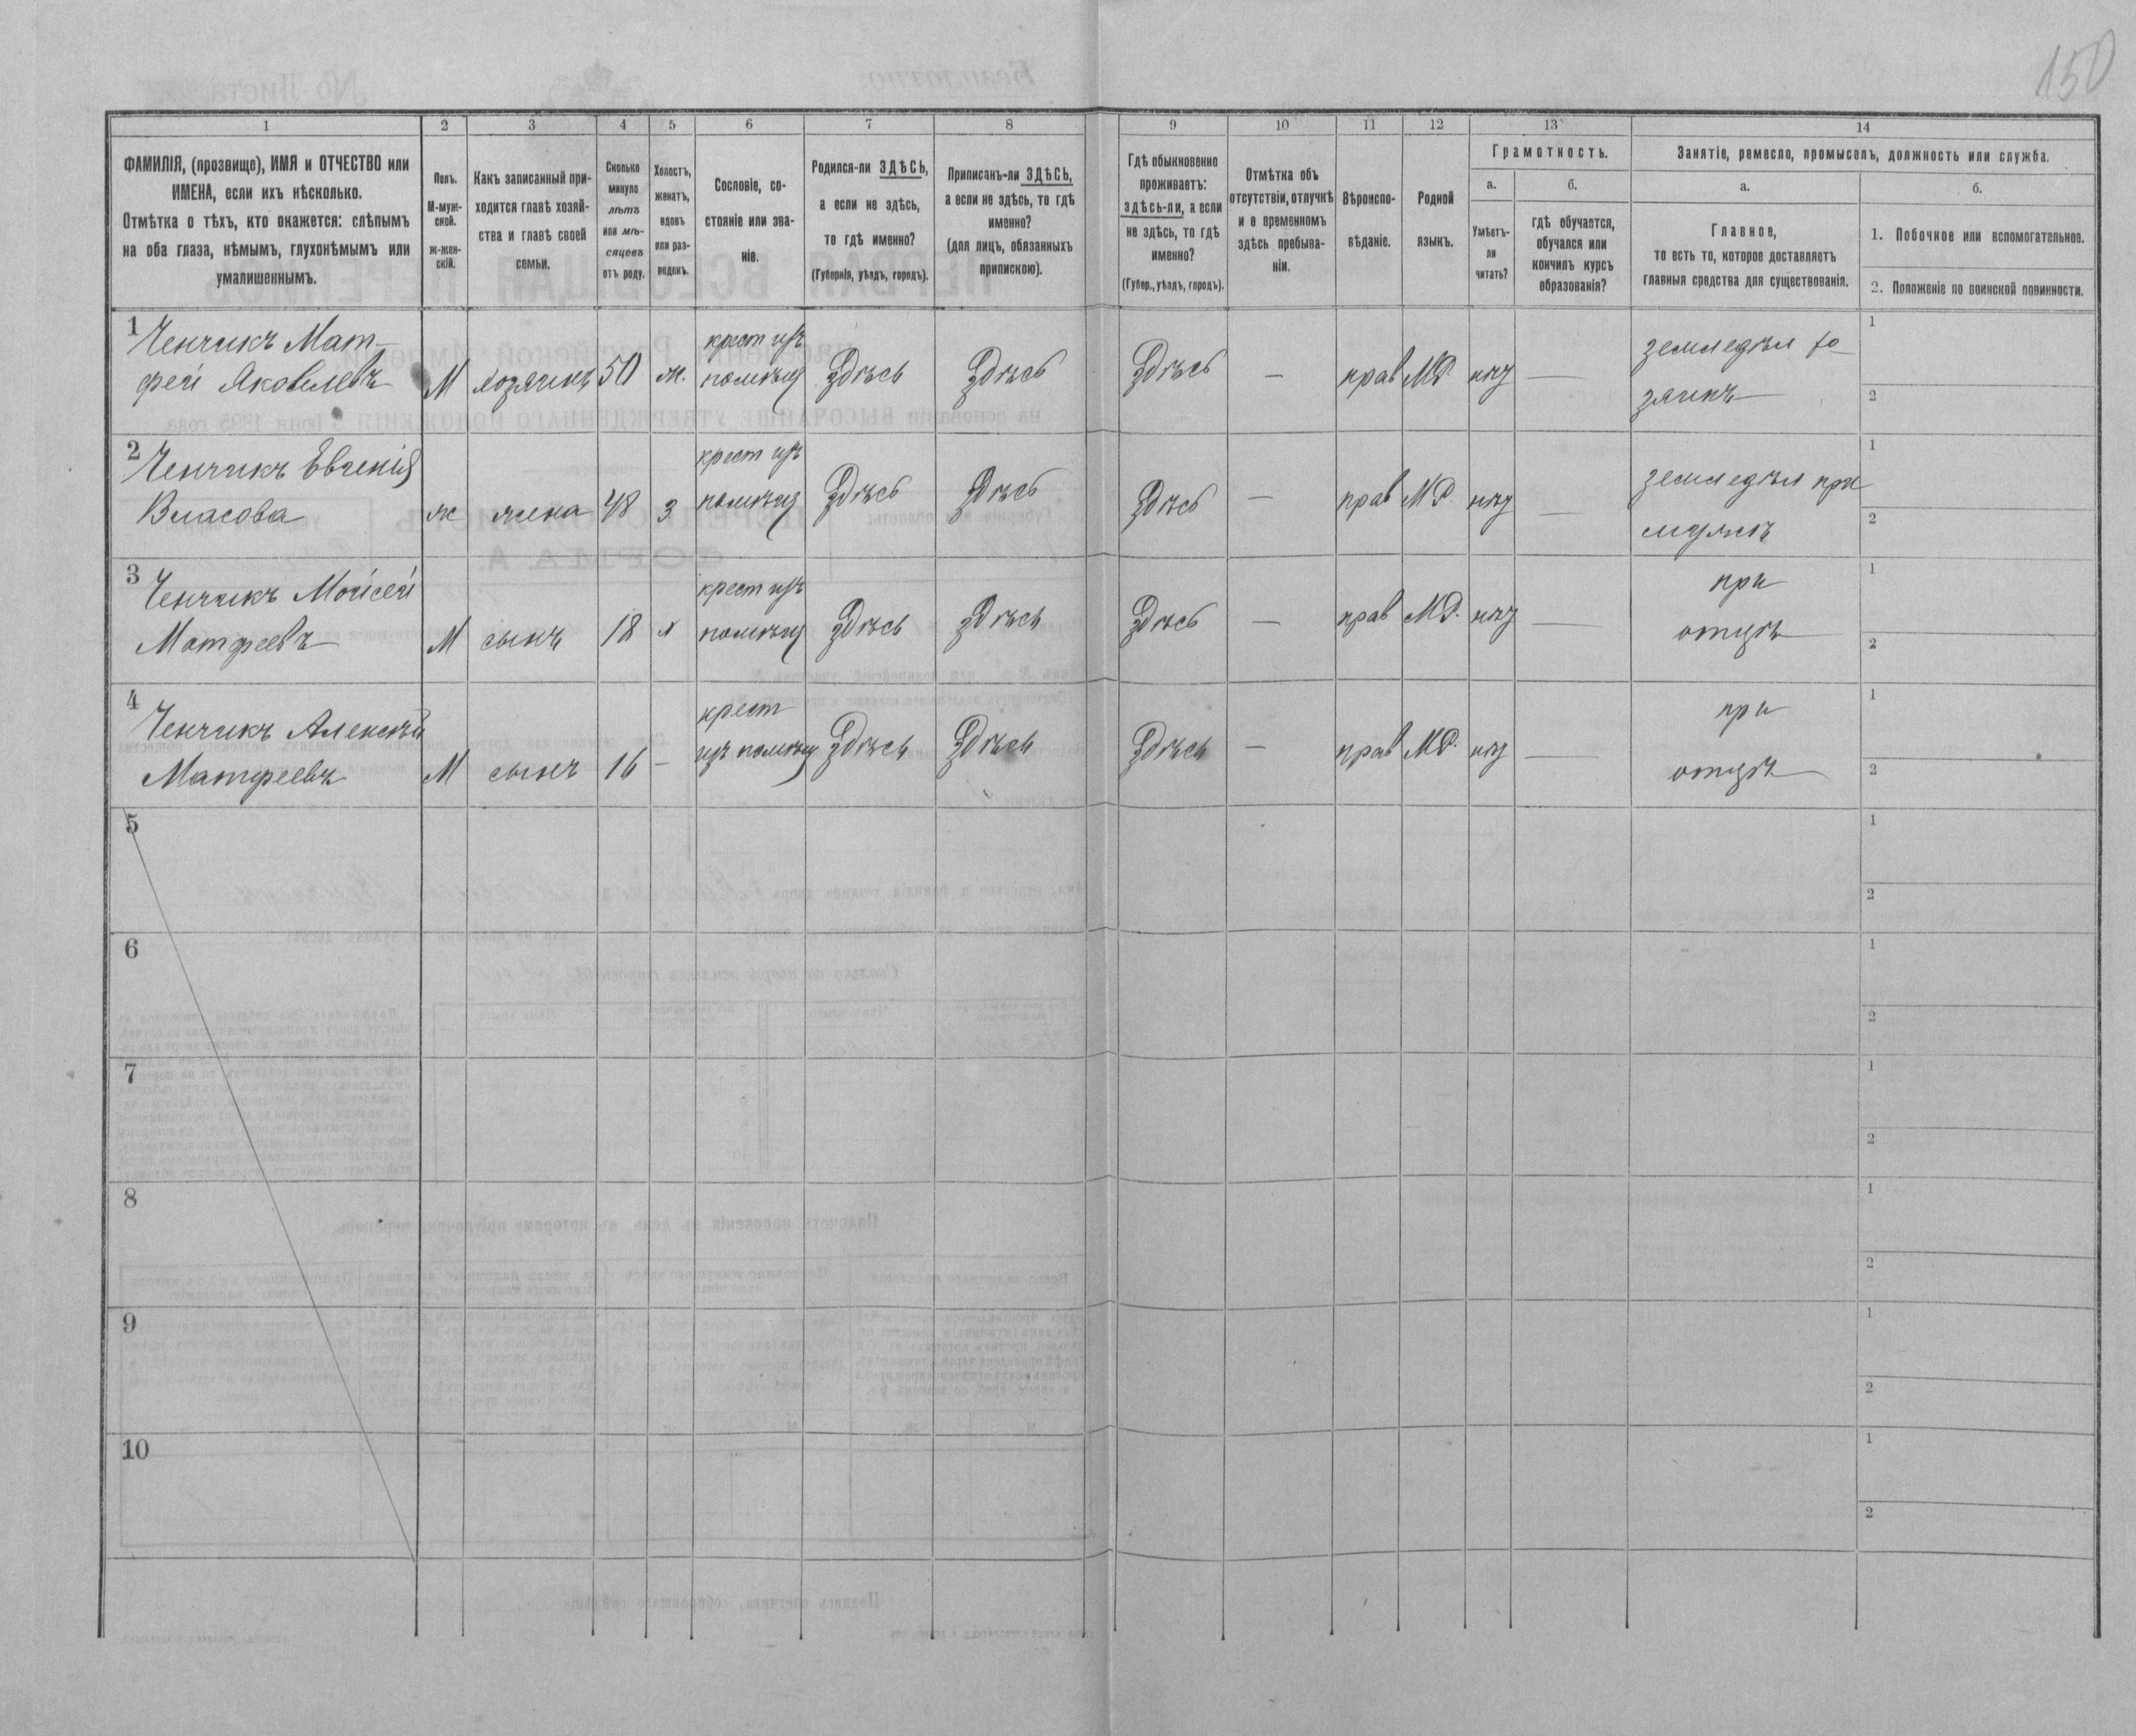 150
1 2 3 4 5 6 7 8 9 10 11 12 13 14
ФАМИЛІЯ, (прозвище), ИМЯ и ОТЧЕСТВО или
ИМЕНА, если ихъ нѣсколько.
Отмѣтка о тѣхъ, кто окажется: слѣпымъ
на оба глаза, нѣмымъ, глухонѣмымъ или
умалишеннымъ.
Полъ.
М-муж-
ской.
ж-жен-
скій.
Какъ записанный при-
ходится главѣ хозяй-
ства и главѣ своей
семьи.
Сколько
минуло
лѣтъ
или мѣ-
сяцевъ
отъ роду.
Холостъ,
женатъ,
вдовъ
или раз-
веденъ.
Сословіе, со-
стояніе или зва-
ніе.
Родился-ли ЗДѢСЬ,
а если не здѣсь,
то гдѣ именно?
(Губернія, уѣздъ, городъ).
Приписанъ-ли ЗДѢСЬ,
а если не здѣсь, то гдѣ
именно?
(для лицъ, обязанныхъ
припискою).
Гдѣ обыкновенно
проживаетъ:
здѣсь-ли, а если
не здѣсь, то гдѣ
именно?
(Губер., уѣздъ, городъ).
Отмѣтка объ
отсутствіи, отлучкѣ
и о временномъ
здѣсь пребыва-
ніи.
Вѣроиспо-
вѣданіе.
Родной
языкъ.
Грамотность.
а.
Умѣетъ-
ли
читать?
б.
гдѣ обучается,
обучался или
кончилъ курсъ
образованія?
Занятіе, ремесло, промыселъ, должность или служба.
а.
Главное,
то есть то, которое доставляетъ
главныя средства для существованія.
б.
1. Побочное или вспомогательное.
2. Положеніе по воинской повинности.
1
Ченчикъ Мат-
фей Яковлевъ
М хозяинъ 50 ж.
крест изъ
помѣщ
Здѣсь Здѣсь Здѣсь — прав МР. нѣт —
земледѣл хо
зяинъ
1
2
2
Ченчикъ Евгенія
Власова
ж жена 48 з
крест изъ
помѣщ
Здѣсь Здѣсь Здѣсь — прав МР. нѣт —
земледѣл при
мужѣ
1
2
3
Ченчикъ Моисей
Матфеевъ
М сынъ 18 х
крест изъ
помѣщ
Здѣсь Здѣсь Здѣсь — прав МР. нѣт —
при
отцѣ
1
2
4
Ченчикъ Алексѣй
Матфеевъ
М сынъ 16 —
крест
изъ помѣщ
Здѣсь Здѣсь Здѣсь — прав МР. нѣт —
при
отцѣ
1
2
5
1
2
6
1
2
7
1
2
8
1
2
9
1
2
10
1
2